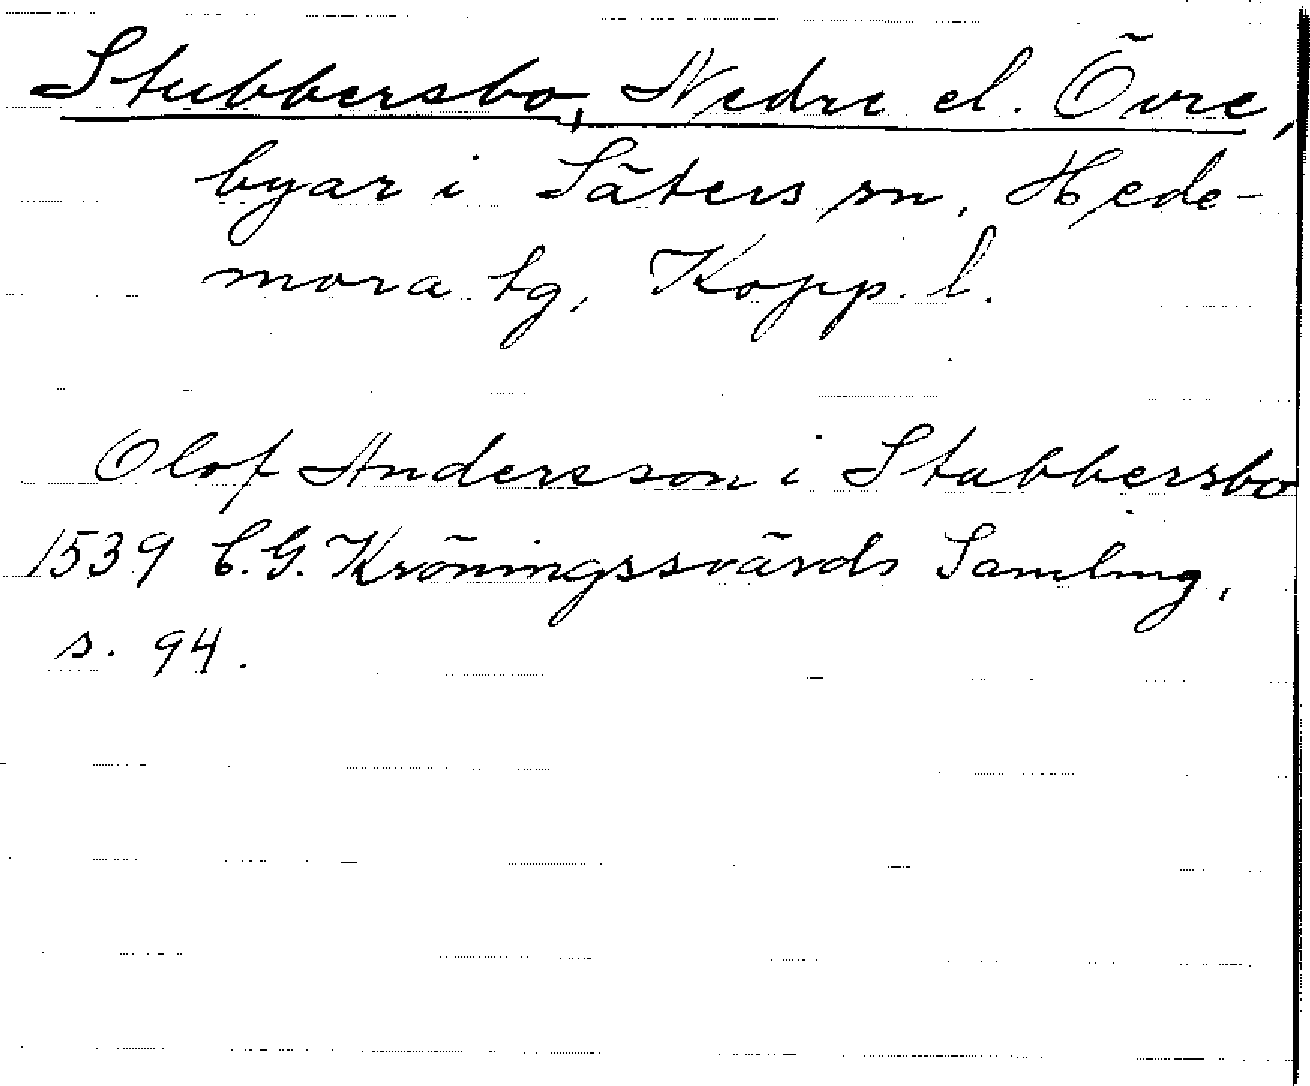 Stubbersbo, Nedre el. Övre,
byar i Säters sn, Hede-
mora tg, Kopp. l.
Olof Andersson i Stubbersbo
1539 C.G. Kröningssvärds Samling,
s. 94.